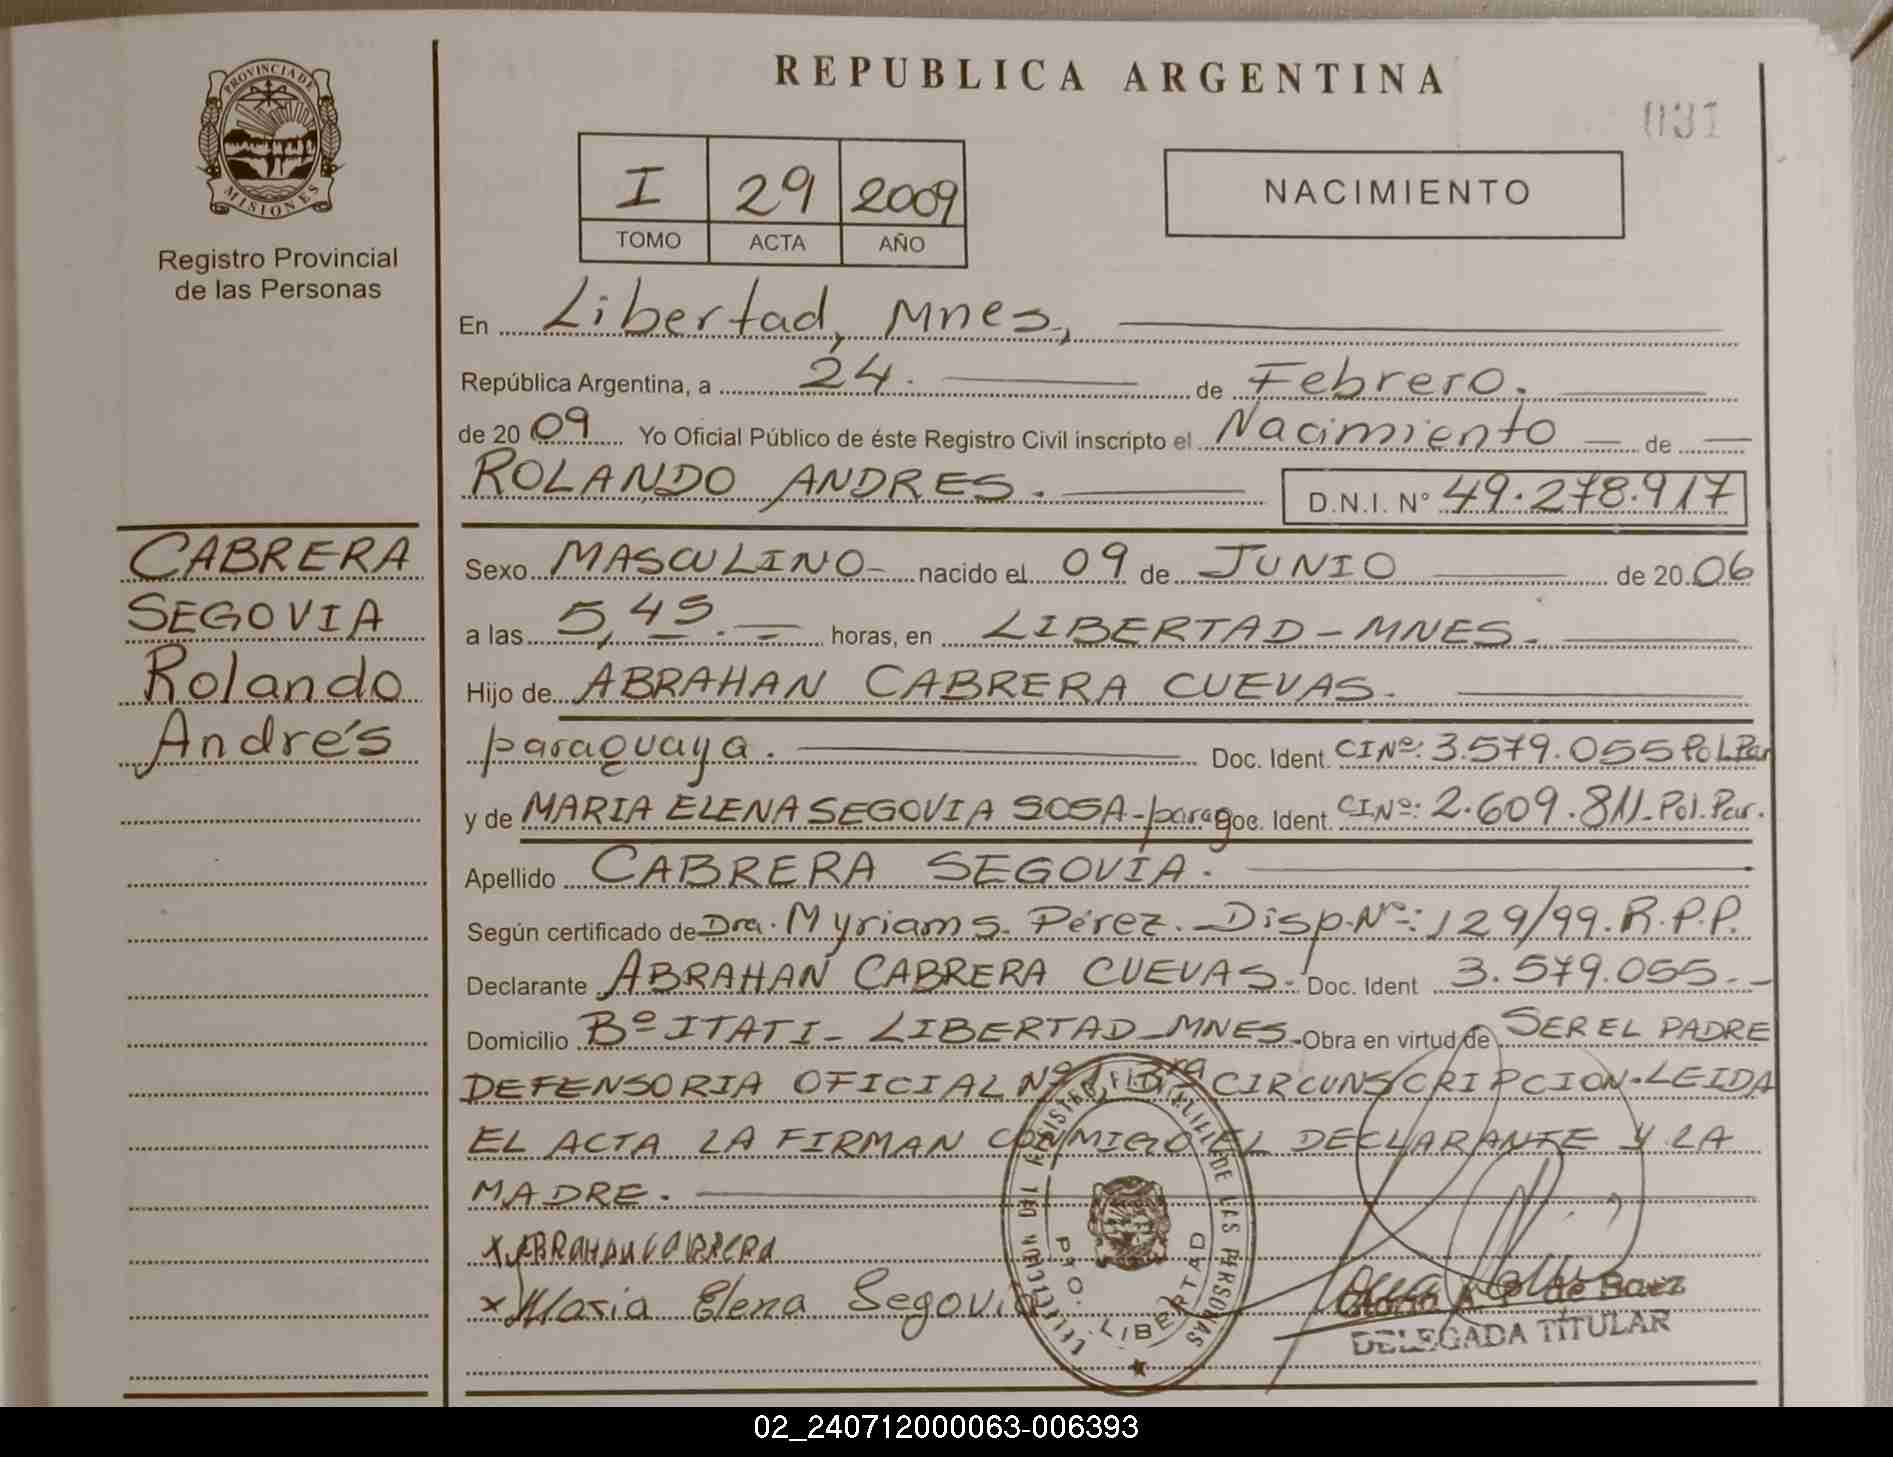 REPUBLICA ARGENTINA
031
PROVINCIA DE
MISIONES
Registro Provincial
de las Personas
I 29 2009
TOMO ACTA AÑO
NACIMIENTO
En Libertad, Mnes,
República Argentina, a 24. de Febrero.
de 2009 Yo Oficial Público de éste Registro Civil inscripto el Nacimiento de
ROLANDO ANDRES. D.N.I. N° 49.278.917
CABRERA
SEGOVIA
Rolando
Andrés
Sexo MASCULINO nacido el 09 de JUNIO de 2006
a las 5,45. horas, en LIBERTAD - MNES.
Hijo de ABRAHAN CABRERA CUEVAS.
paraguaya. Doc. Ident. CINº: 3.579.055 Pol.Par
y de MARIA ELENA SEGOVIA SOSA - parag Doc. Ident. CINº: 2.609.811. Pol. Par.
Apellido CABRERA SEGOVIA.
Según certificado de Dra. Myriam S. Pérez. Disp. Nº: 129/99. R.P.P.
Declarante ABRAHAN CABRERA CUEVAS. Doc. Ident 3.579.055.
Domicilio Bº ITATI - LIBERTAD - MNES. Obra en virtud de SER EL PADRE
DEFENSORIA OFICIAL Nº 1, 3ra CIRCUNSCRIPCION. LEIDA
EL ACTA LA FIRMAN CONMIGO EL DECLARANTE Y LA
MADRE.
x ABRAHAN CABRERA
x Maria Elena Segovia
DE LAS PERSONAS
PTO. LIBERTAD
de Baez
DELEGADA TITULAR
02_240712000063-006393